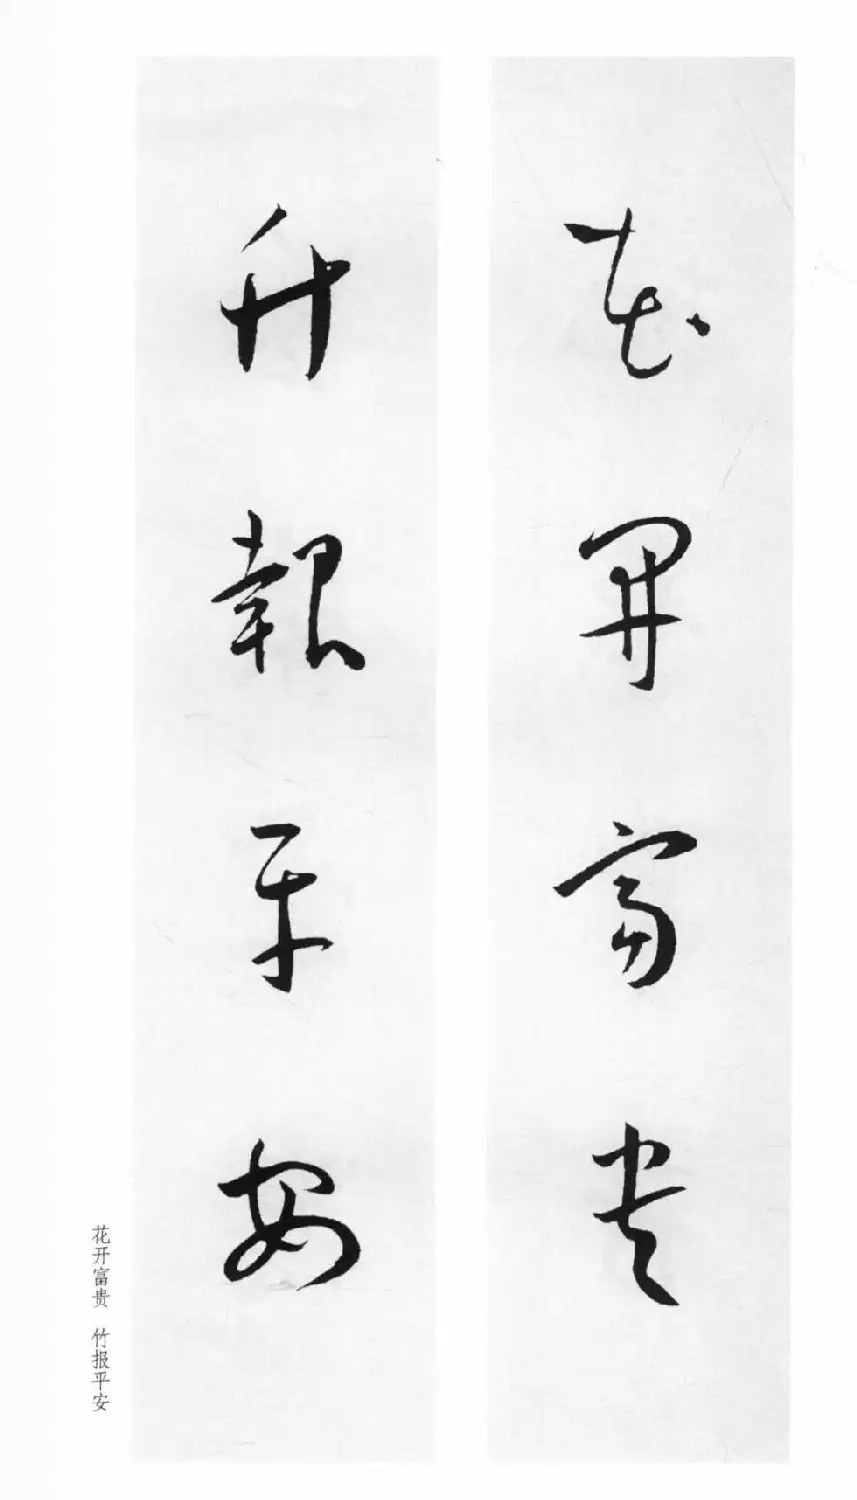 花開富貴
竹報平安
花开富贵 竹报平安